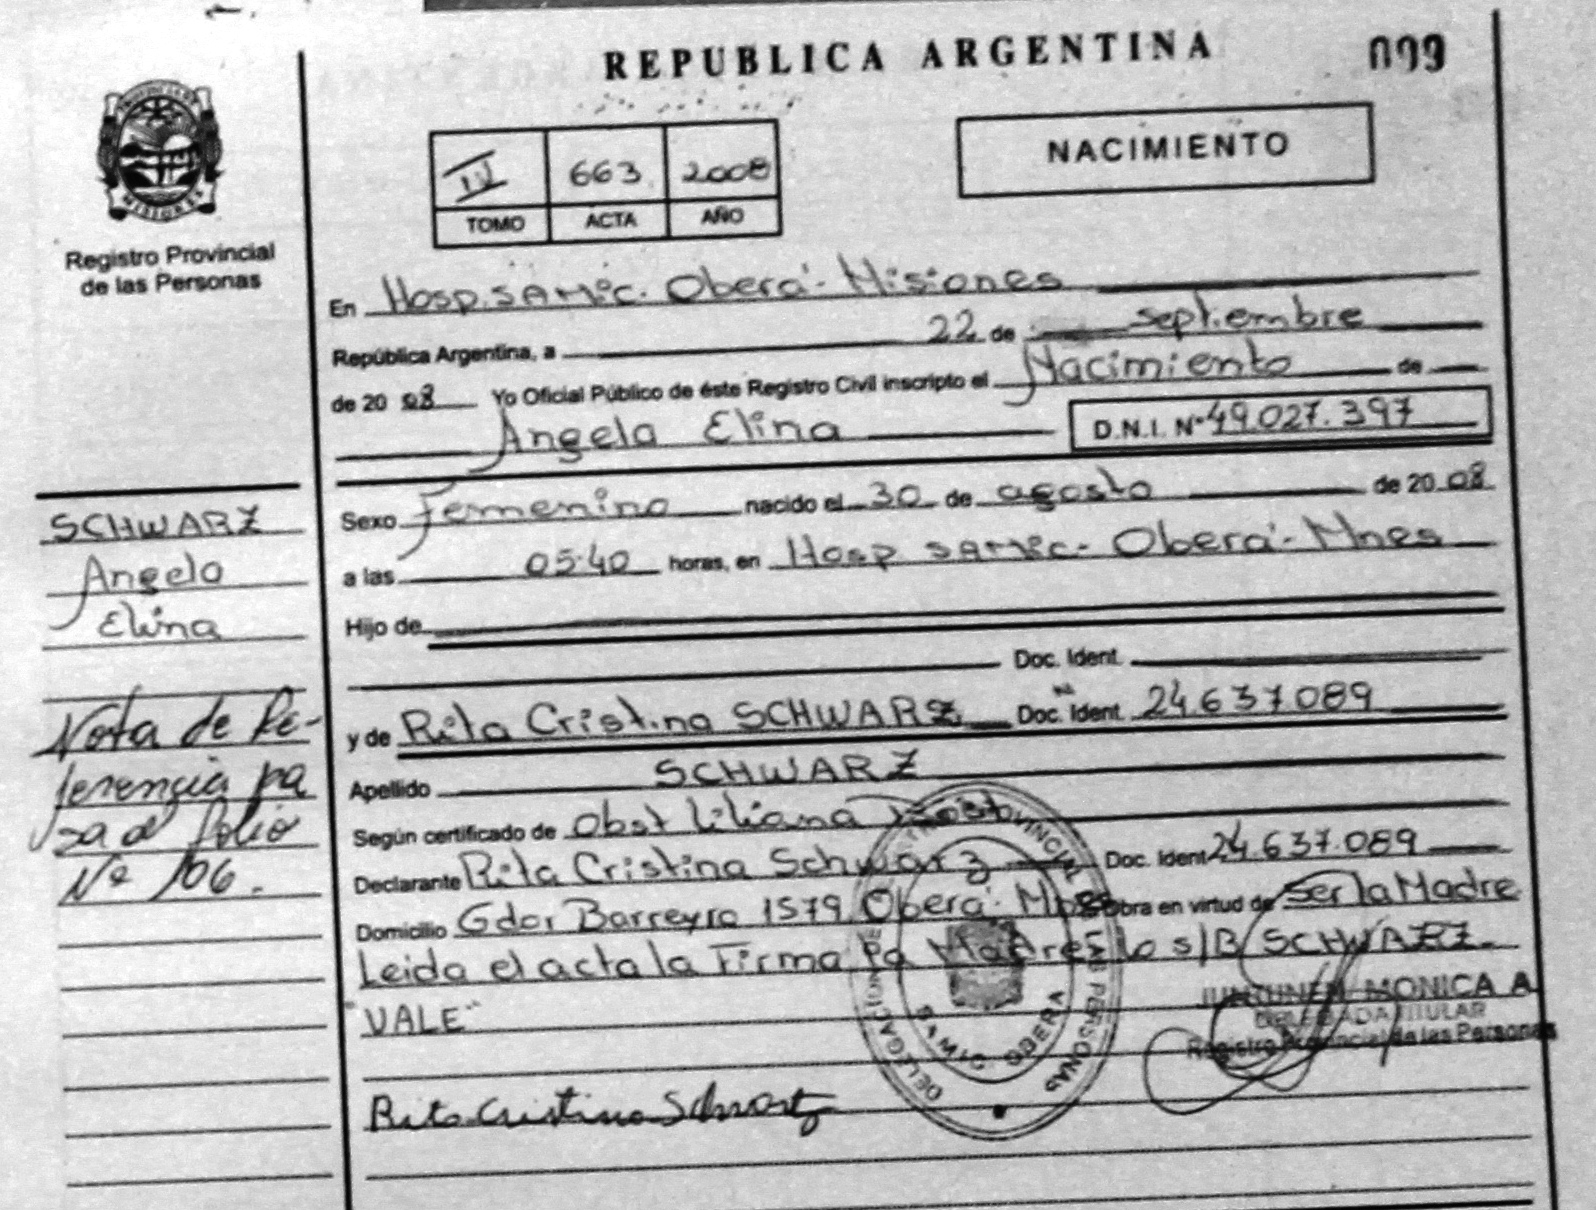 REPUBLICA ARGENTINA
099
MISIONES
Registro Provincial
de las Personas
IV 663 2008
TOMO ACTA AÑO
NACIMIENTO
En Hosp. SAMic. Oberá - Misiones
República Argentina, a 22 de septiembre
de 2008 Yo Oficial Público de éste Registro Civil inscripto el Nacimiento de
Angela Elina D.N.I. Nº 49.027.397
Sexo Femenino nacido el 30 de agosto de 2008
a las 05:40 horas, en Hosp SAMic - Oberá - Mnes
Hijo de
Doc. Ident.
y de Rita Cristina SCHWARZ Doc. Ident. 24.637.089
Apellido SCHWARZ
Según certificado de Obst Liliana
Declarante Rita Cristina Schwarz Doc. Ident 24.637.089
Domicilio Gdor Barreyro 1579 Oberá - Mnes Obra en virtud de ser la Madre
Leida el acta la Firma La Madre lo s/B SCHWARZ.
"VALE"
Rita Cristina Schwartz
SCHWARZ
Angela
Elina
Nota de Re-
ferencia pa
sa al folio
Nº 106.
DELEGACION
PROVINCIAL DE LAS PERSONAS
SAMIC OBERA
JUNTUNEN MONICA A
DELEGADA TITULAR
Registro Provincial de las Personas